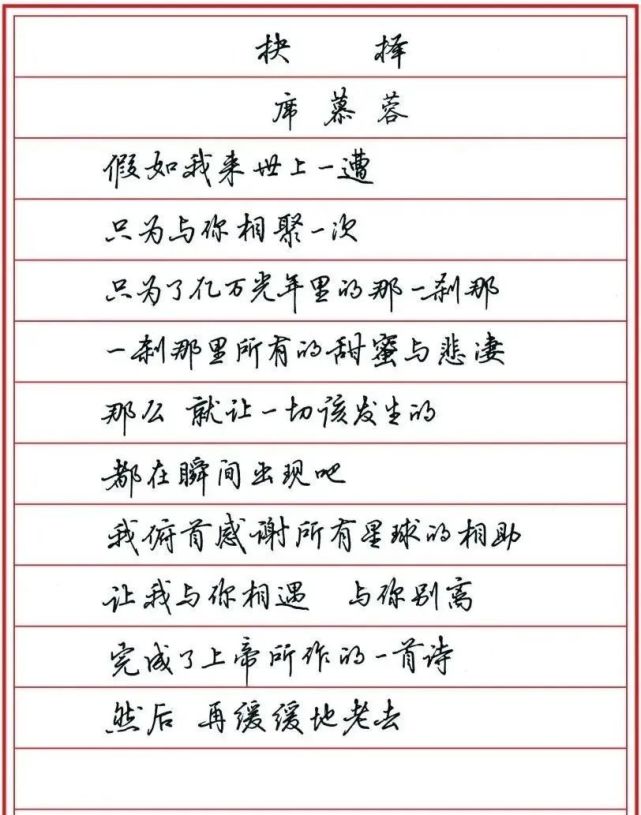 抉 择
席慕蓉
假如我来世上一遭
只为与你相聚一次
只为了亿万光年里的那一刹那
一刹那里所有的甜蜜与悲凄
那么 就让一切该发生的
都在瞬间出现吧
我俯首感谢所有星球的相助
让我与你相遇 与你别离
完成了上帝所作的一首诗
然后 再缓缓地老去